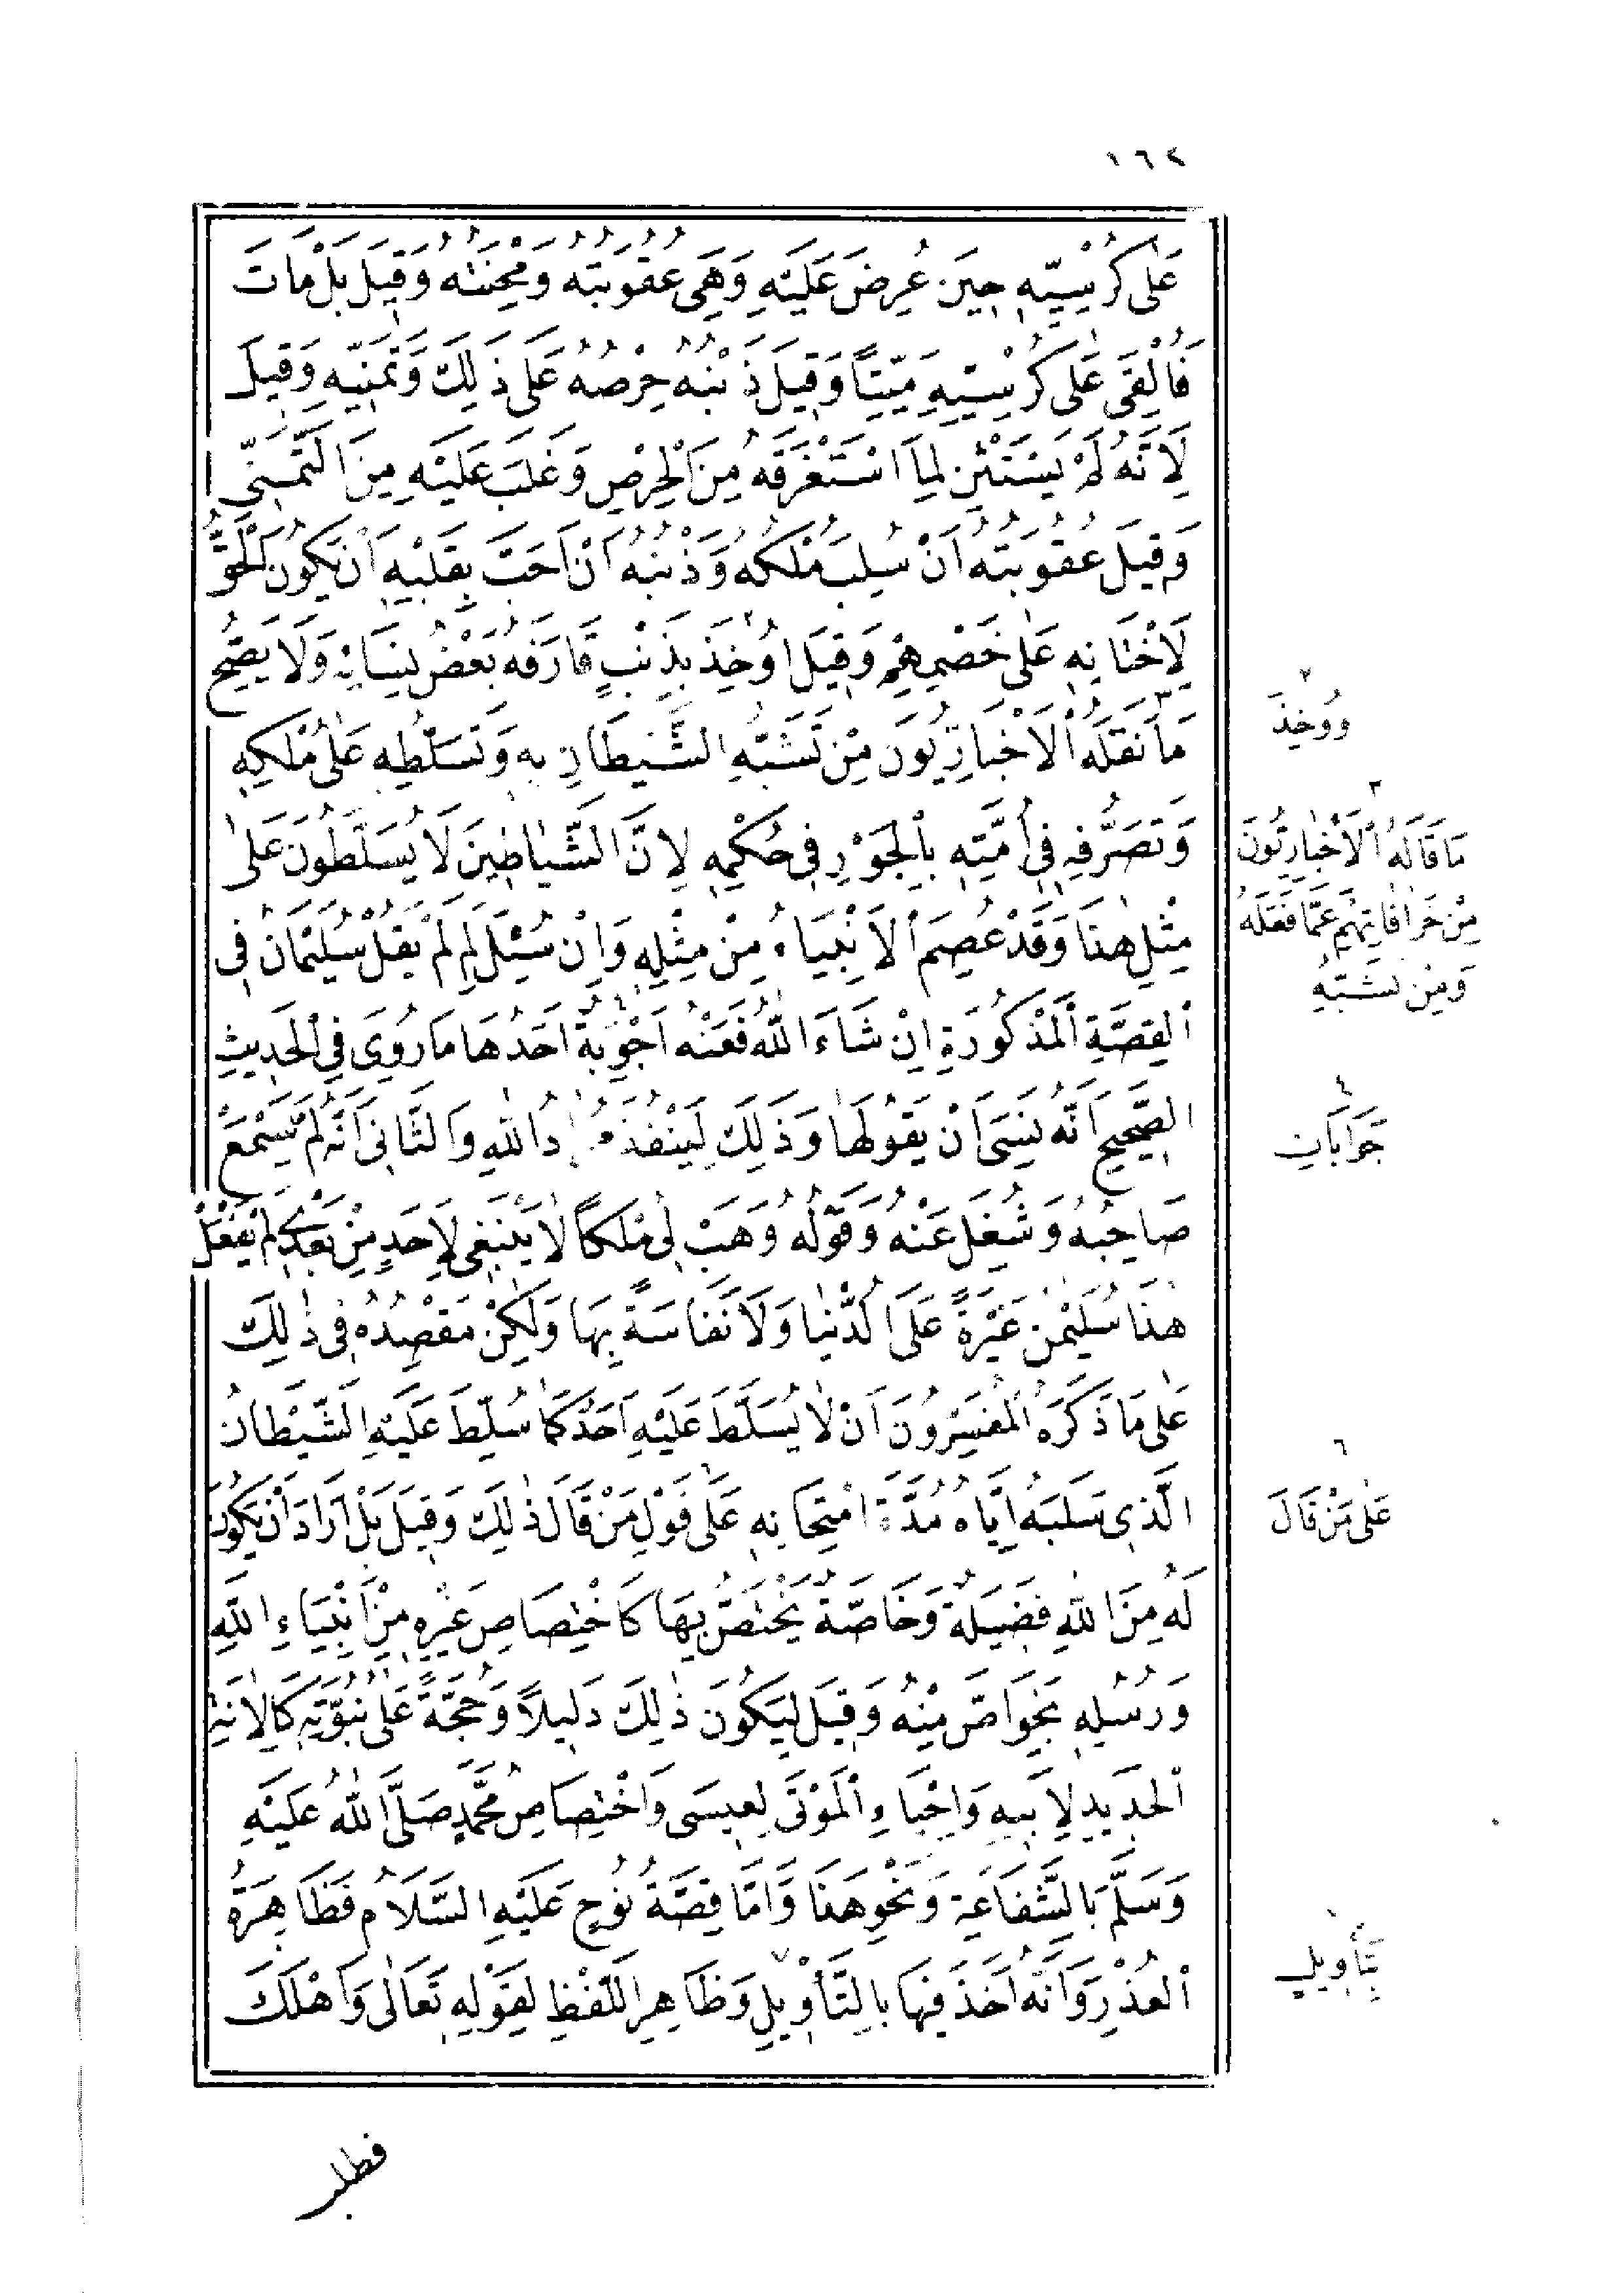 ١٦٢
عَلٰى كُرْسِيِّهِ حِينَ عُرِضَ عَلَيْهِ وَهِيَ عُقُوبَتُهُ وَمِحْنَتُهُ وَقِيلَ بَلْ مَاتَ
فَأُلْقِيَ عَلٰى كُرْسِيِّهِ مَيِّتًا وَقِيلَ ذَنْبُهُ حِرْصُهُ عَلٰى ذَلِكَ وَتَمَنِّيهِ وَقِيلَ
لِأَنَّهُ لَمْ يَسْتَثْنِ لِمَا اسْتَغْرَقَهُ مِنَ الْحِرْصِ وَغَلَبَ عَلَيْهِ مِنَ التَّمَنِّي
وَقِيلَ عُقُوبَتُهُ أَنْ سُلِبَ مُلْكَهُ وَذَنْبُهُ أَنْ أَحَبَّ بِقَلْبِهِ أَنْ يَكُونَ الْحَقُّ
لِأَخْتَانِهِ عَلٰى خَصْمِهِمْ وَقِيلَ أُوخِذَ بِذَنْبٍ قَارَفَهُ بَعْضُ نِسَائِهِ وَلَا يَصِحُّ
مَا نَقَلَهُ الْأَخْبَارِيُّونَ مِنْ تَشَبُّهِ الشَّيْطَانِ بِهِ وَتَسَلُّطِهِ عَلٰى مُلْكِهِ
وَتَصَرُّفِهِ فِي أُمَّتِهِ بِالْجَوْرِ فِي حُكْمِهِ لِأَنَّ الشَّيَاطِينَ لَا يُسَلَّطُونَ عَلٰى
مِثْلِ هٰذَا وَقَدْ عُصِمَ الْأَنْبِيَاءُ مِنْ مِثْلِهِ وَإِنْ سُئِلَ لِمَ لَمْ يَقُلْ سُلَيْمَانُ فِي
الْقِصَّةِ الْمَذْكُورَةِ إِنْ شَاءَ اللّٰهُ فَعَنْهُ أَجْوِبَةٌ أَحَدُهَا مَا رُوِيَ فِي الْحَدِيثِ
الصَّحِيحِ أَنَّهُ نَسِيَ أَنْ يَقُولَهَا وَذَلِكَ لِيَنْفُذَ مُرَادُ اللّٰهِ وَالثَّانِي أَنَّهُ لَمْ يَسْمَعْ
صَاحِبُهُ وَشُغِلَ عَنْهُ وَقَوْلُهُ وَهَبْ لِي مُلْكًا لَا يَنْبَغِي لِأَحَدٍ مِنْ بَعْدِي لَمْ يَفْعَلْ
هٰذَا سُلَيْمٰنُ غَيْرَةً عَلَى الدُّنْيَا وَلَا نَفَاسَةً بِهَا وَلٰكِنْ مَقْصِدُهُ فِي ذٰلِكَ
عَلٰى مَا ذَكَرَهُ الْمُفَسِّرُونَ أَنْ لَا يُسَلَّطَ عَلَيْهِ أَحَدٌ كَمَا سُلِّطَ عَلَيْهِ الشَّيْطَانُ
الَّذِي سَلَبَهُ إِيَّاهُ مُدَّةَ امْتِحَانِهِ عَلٰى قَوْلِ مَنْ قَالَ ذٰلِكَ وَقِيلَ بَلْ أَرَادَ أَنْ يَكُونَ
لَهُ مِنَ اللّٰهِ فَضِيلَةٌ وَخَاصَّةٌ يَخْتَصُّ بِهَا كَاخْتِصَاصِ غَيْرِهِ مِنْ أَنْبِيَاءِ اللّٰهِ
وَرُسُلِهِ بِخَوَاصَّ مِنْهُ وَقِيلَ لِيَكُونَ ذٰلِكَ دَلِيلًا وَحُجَّةً عَلٰى نُبُوَّتِهِ كَإِلَانَةِ
الْحَدِيدِ لِأَبِيهِ وَإِحْيَاءِ الْمَوْتَى لِعِيسَى وَاخْتِصَاصِ مُحَمَّدٍ صَلَّى اللّٰهُ عَلَيْهِ
وَسَلَّمَ بِالشَّفَاعَةِ وَنَحْوِ هٰذَا وَأَمَّا قِصَّةُ نُوحٍ عَلَيْهِ السَّلَامُ فَظَاهِرَةُ
الْعُذْرِ وَأَنَّهُ أَخَذَ فِيهَا بِالتَّأْوِيلِ وَظَاهِرِ اللَّفْظِ لِقَوْلِهِ تَعَالٰى وَأَهْلَكَ
٢
وُوخِذَ
٣
مَا قَالَهُ الْأَخْبَارِيُّونَ
مِنْ خُرَافَاتِهِمْ عَمَّا فَعَلَهُ
وَمِنْ تَشَبُّهِ
٤
جَوَابَاتٌ
٦
عَلٰى مَنْ قَالَ
بِتَأْوِيلِ